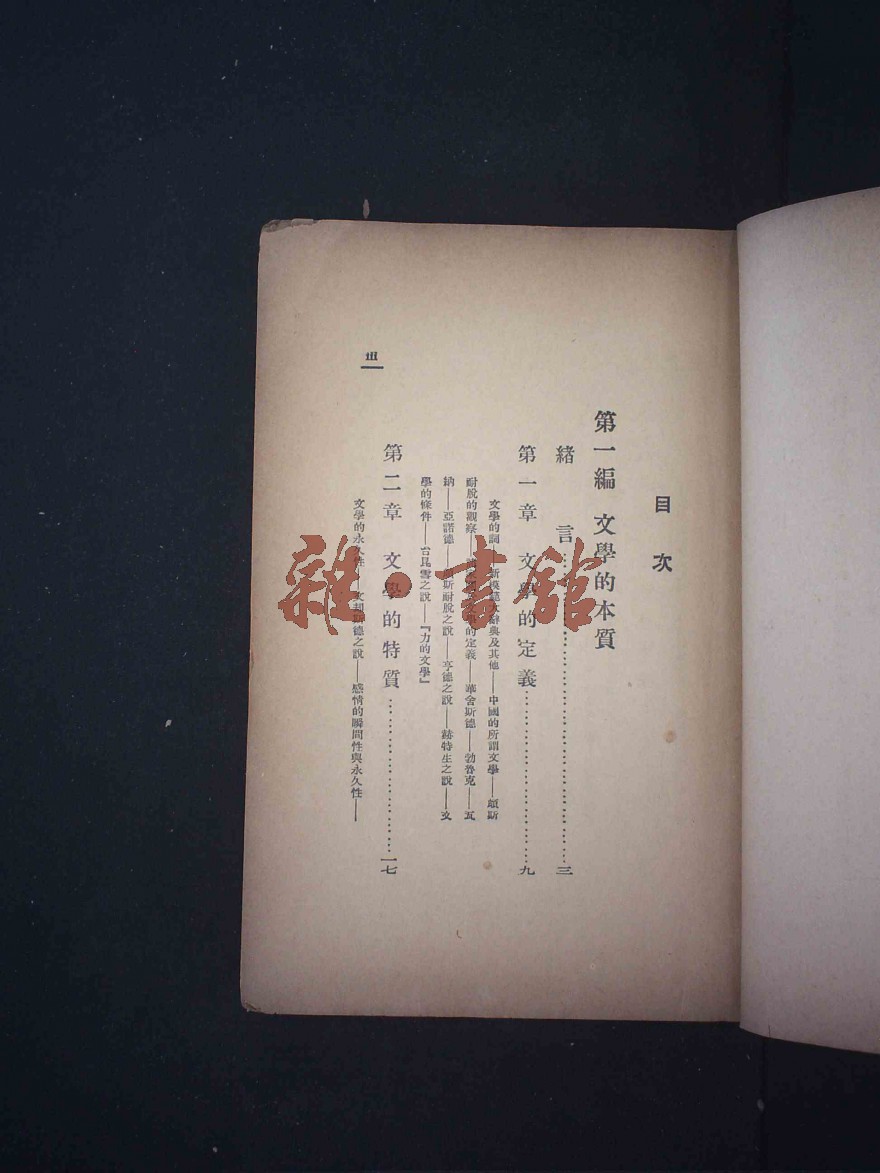 目次
第一編 文學的本質
緒言……三
第一章 文學的定義……九
文學的詞 新 辭典及其他——中國的所謂文學——頗斯
耐脫的觀察 的定義——華舍斯德——勃魯克——瓦
納——亞諾德 斯耐脫之說——亨德之說——赫特生之說——文
學的條件——台昆雪之說——『力的文學』
第二章 文學的特質……一七
文學的永久性 文却斯德之說——感情的瞬間性與永久性——
III
雜·書館